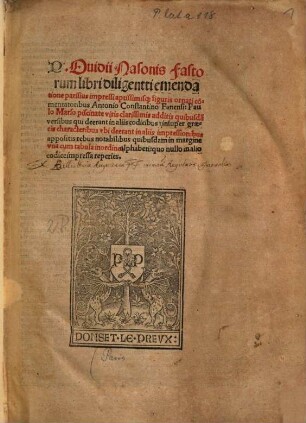 P. Ouidii Nasonis Fasto
rum libri diligenti emenda
tione parisius impressi aptissimisq3 figuris ornati cō
mentatoribus Antonio Constantino Fanensi: Pau
lo Marso piscinate viris clarissimis additis quibusdā
versibus qui deerant in aliis codicibus: insuper gre
cis characteribus vbi deerant in aliis impressionibus
appositis rebus notabilibus quibusdam in margine
vna cum tabula in ordine alphabeti: quo nullo in alio
codice impressa reperies.
P P
DONSET·LE·PREVX: